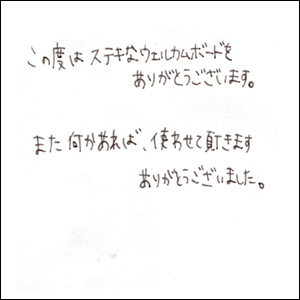 この度は ステキなウェルカムボードを
ありがとうございます。
また 何かあれば、使わせて頂きます
ありがとうございました。